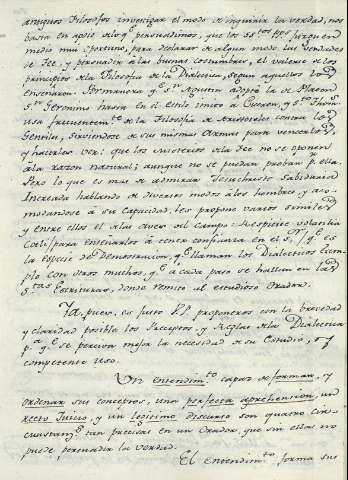 antiguos Filosofos investigar el modo de inquirir la verdad, nos
basta en apoyo de lo q.e persuadimos, que los S.tos PPs juzguen
medio mui oportuno, para declarar de algun modo las verdades
de Fee, y persuadir a las buenas costumbres, el valerse de los
principios de la Filosofia de la Dialectica, segun aquellos los
enseñaron. Por manera q.e S.n Agustin adoptó la de Platon
S.n Geronimo hasta en el estilo imitó a Ciceron, y S.to Thomas
usa frequentem.te de la Filosofia de Aristoteles contra los
Gentiles, sirviendose de sus mismas armas para vencerlos,
y hacerles ver: que los misterios de la Fee no se oponen
a la razon natural; aunque no se puedan probar p.r ella.
Pero lo que es mas de admirar Jesuchristo Sabiduria
Increada hablando de diversos modos a los hombres, y aco-
modandose á su capacidad, les propone varios similes
y entre ellos el de las aves del campo: Respicite volatilia
Coeli para enseñarlos á tener confianza en el S.r, q.e es
la especie de Demostracion, q.e llaman los Dialecticos Exem-
plo con otros muchos, q.e a cada paso se hallan en las
S.tas Escrituras, donde remito al estudioso Orador.
Ya pues, es justo PP. proponeros con la brevedad
y claridad posible los Preceptos, y Reglas de la Dialectica
p.a q.e se perciva mejor la necesidad de su Estudio, y
competente uso.
Un entendim.to capaz de formar, y
ordenar sus conceptos, una perfecta aprehension, un
recto Juicio, y un legitimo discurso son quatro cir-
cunstanc.s tan precisas en un Orador, que sin ellas no
puede persuadir la verdad.
El entendim.to forma sus